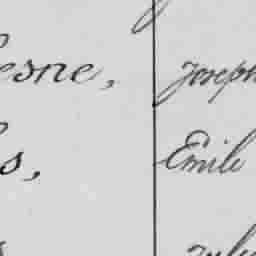 esne, Joseph
s, Émile